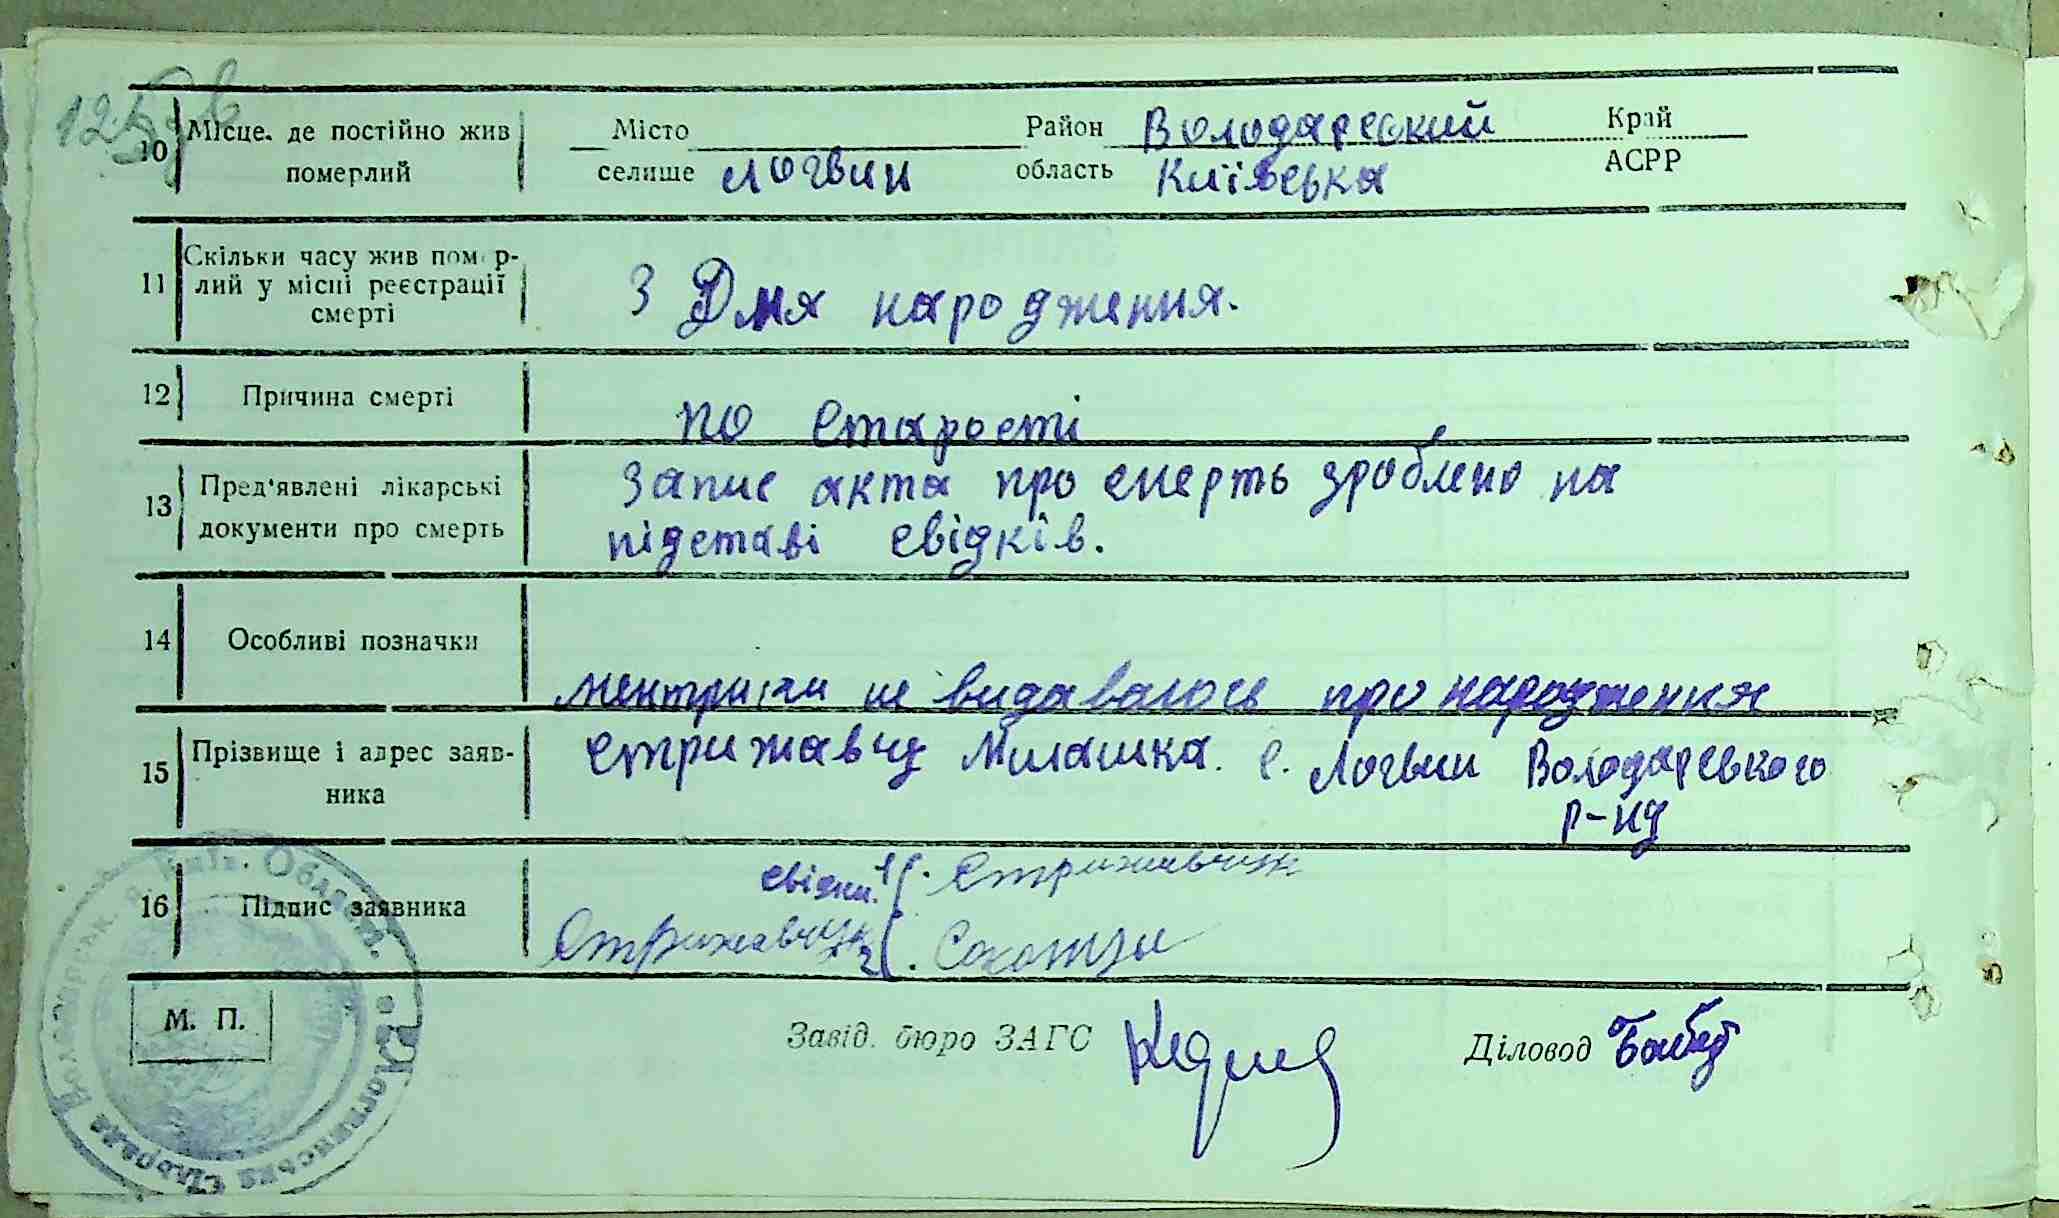 125 зв
10 Місце. де постійно жив померлий Місто селище Логвин Район Володарський область Київська Край АСРР
11 Скільки часу жив помєрлий у місці реєстрації смерті З Дня народження.
12 Причина смерті по старості
13 Пред'явлені лікарські документи про смерть Запис акта про смерть зроблено на
підставі свідків.
14 Особливі позначки не видавалось про народження
15 Прізвище і адрес заявника Стрижавчу Милашка. с. Логвин Володарського
р-ну
16 Підпис заявника свідки. 1). Стрижавчук
Стрижавчук 2).
М. П. Завід. бюро ЗАГС Діловод
Логвинська сільрада Володарськ. р. Київ. Області